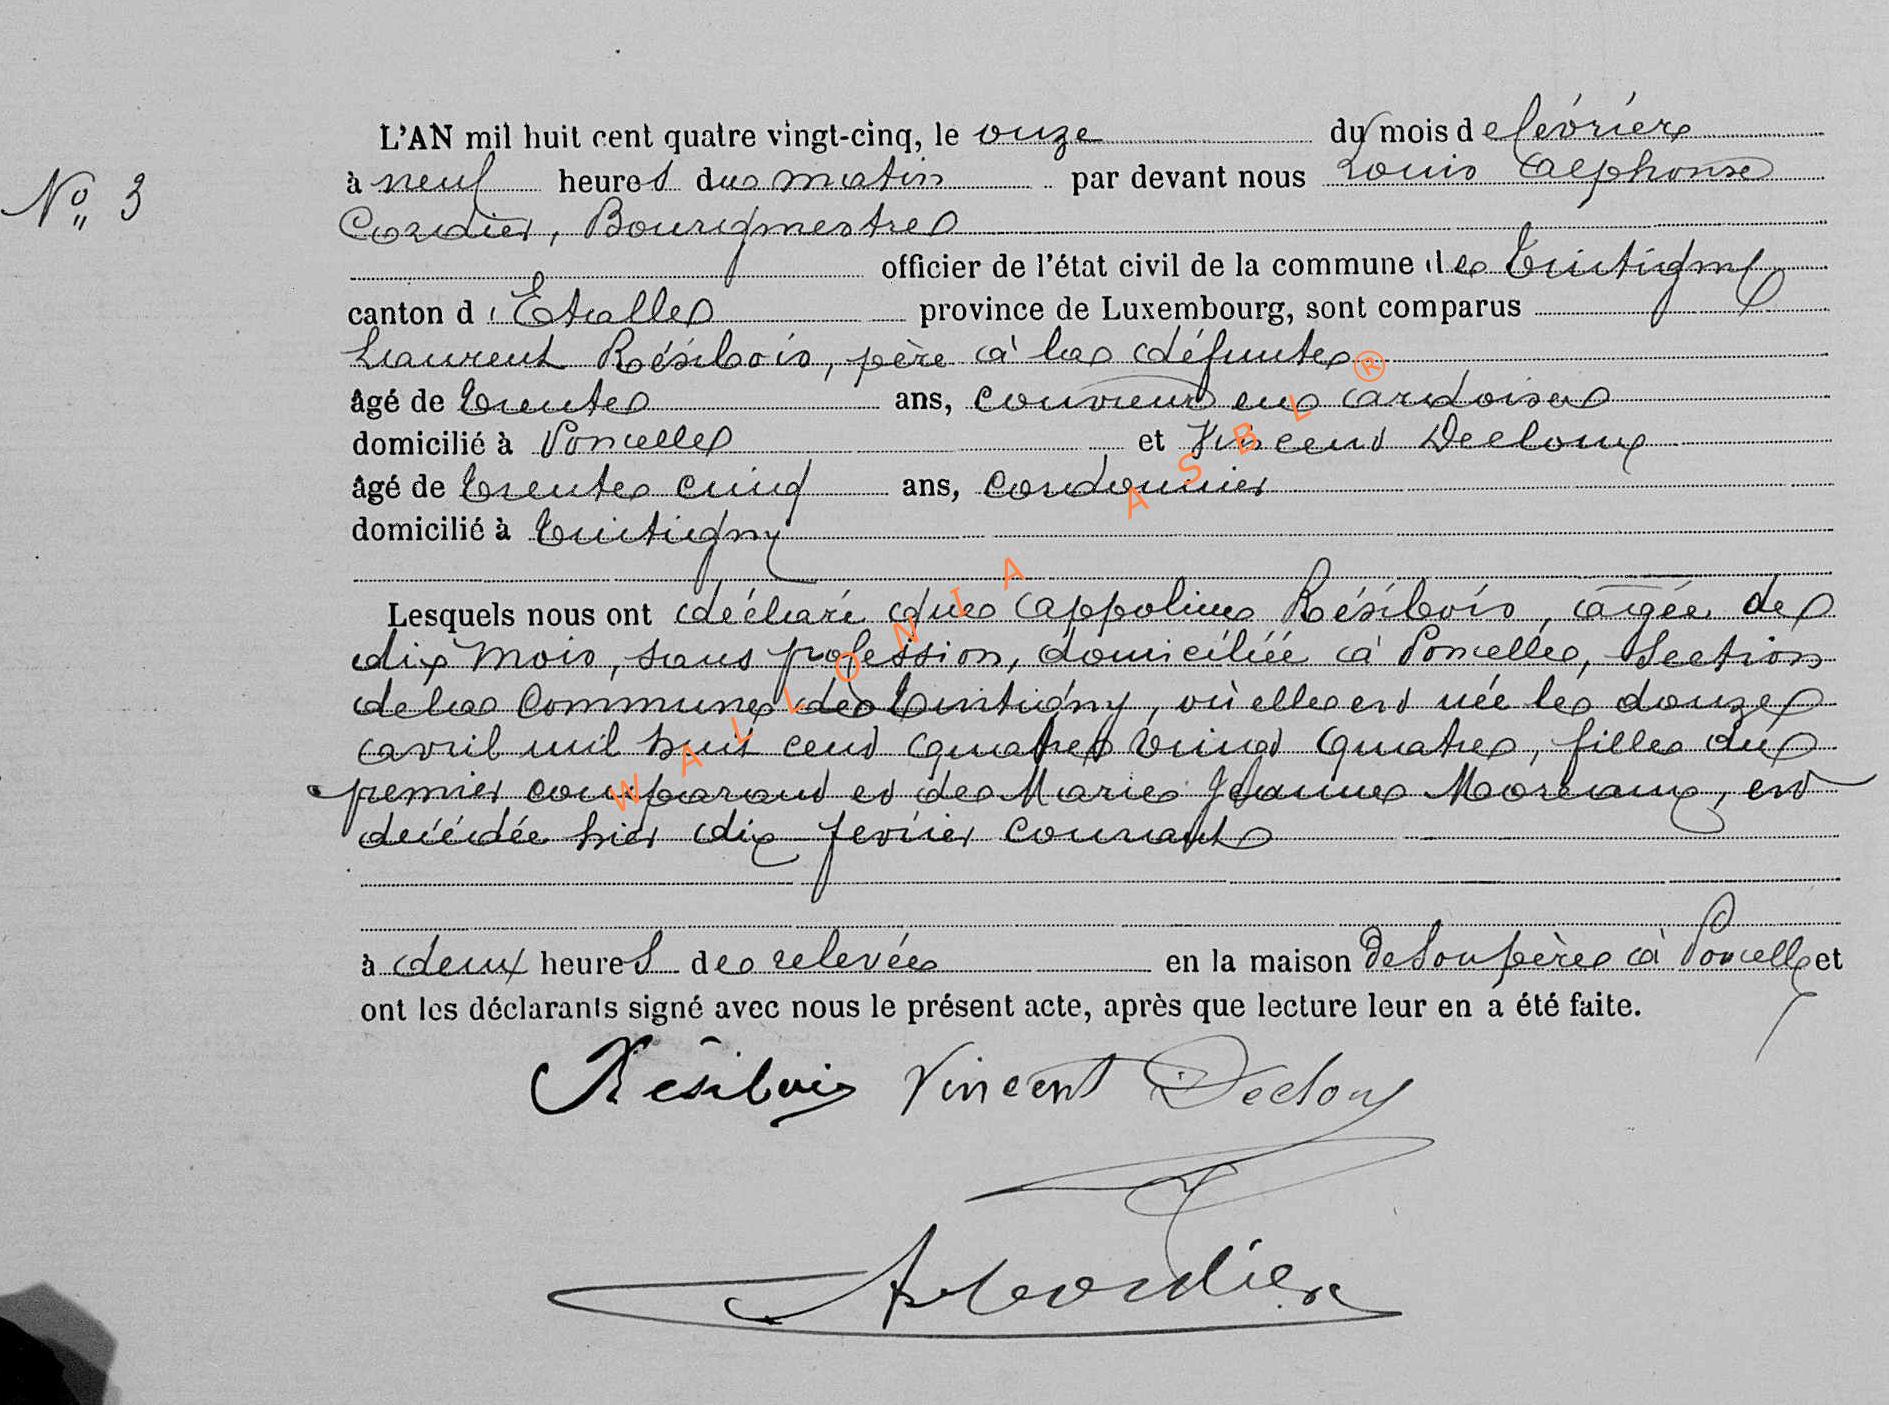 L'AN mil huit cent quatre vingt-cinq, le onze du mois de février
No 3
à neuf heures du matin par devant nous Louis Alphonse
Cordier, Bourgmestre
officier de l'état civil de la commune de Tintigny
canton d'Etalle province de Luxembourg, sont comparus
Laurent Résibois, père à la défunte
âgé de trente ans, couvreur en ardoises
domicilié à Poncelle et Vincent Decloux
âgé de trente cinq ans, cordonnier
domicilié à Tintigny
Lesquels nous ont déclaré que Appoline Résibois, âgée de
dix mois, sans profession, domiciliée à Poncelle, section
de la Commune de Tintigny, où elle est née le douze
avril mil huit cent quatre vingt quatre, fille du
premier comparant et de Marie Jeanne Moreaux, est
décédée hier dix fevrier courant
à deux heures de relevée en la maison de son père à Poncelle et
ont les déclarants signé avec nous le présent acte, après que lecture leur en a été faite.
Résibois Vincent Decloux
A Cordier
WALLONIA ASBL ®